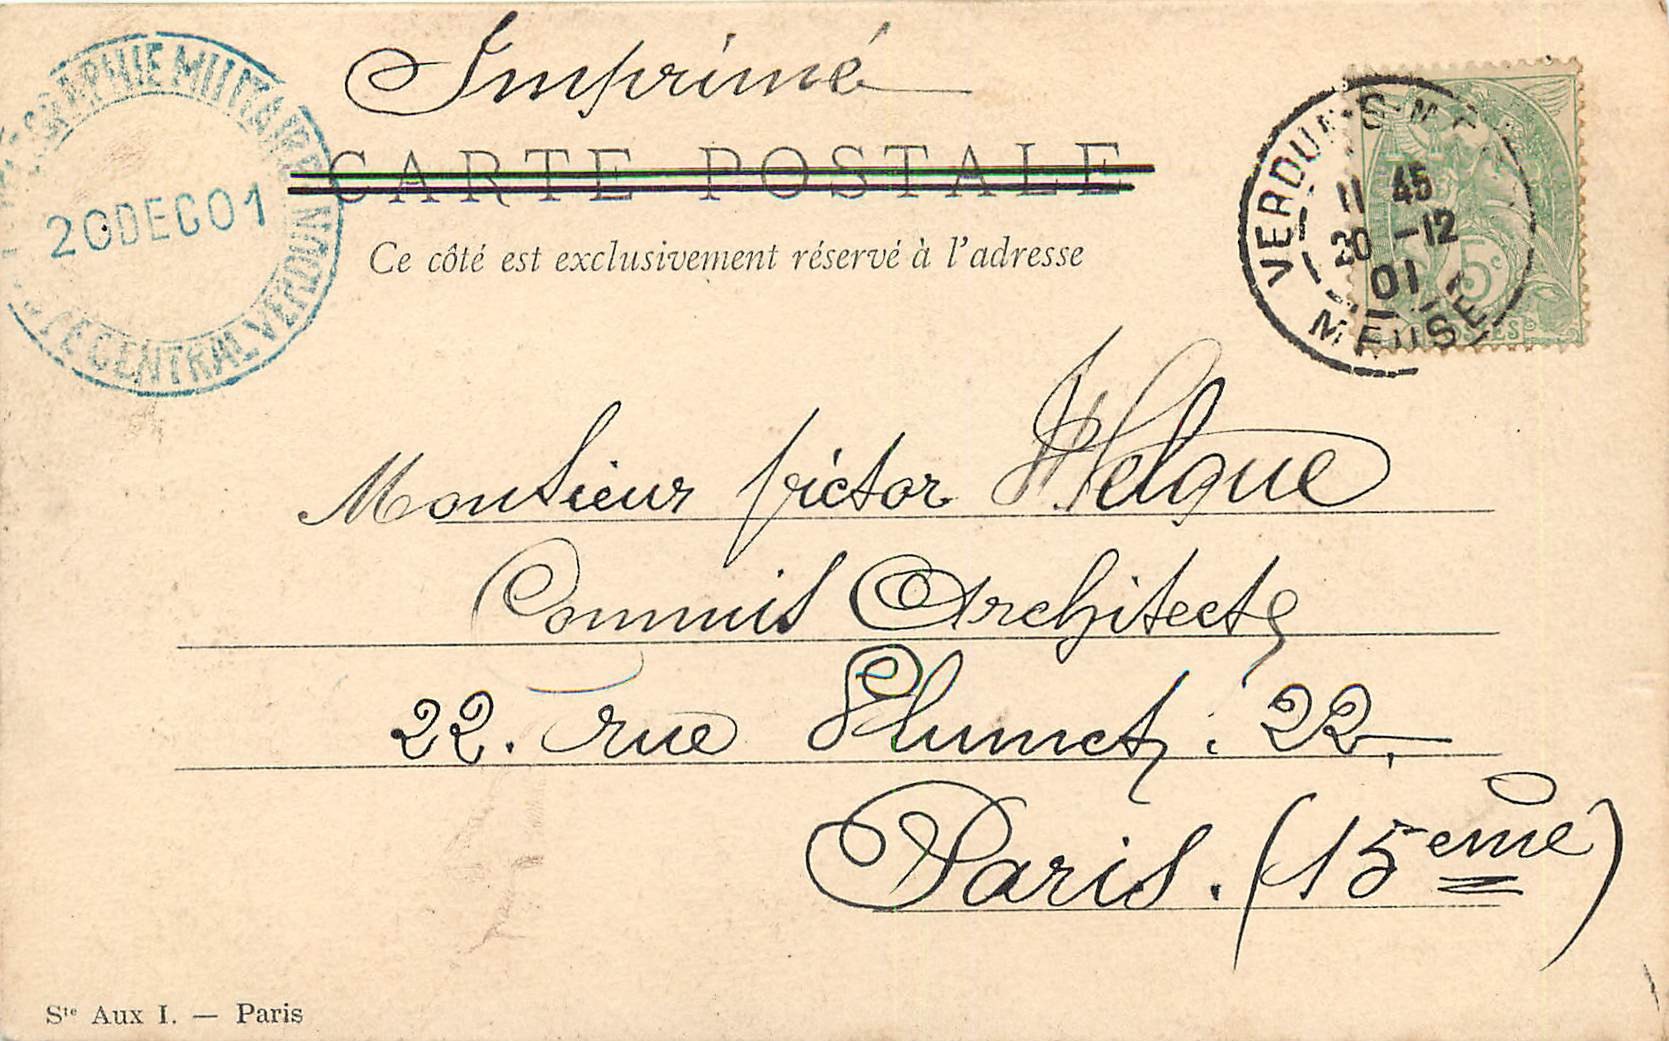 Imprimé
CARTE POSTALE
Ce côté est exclusivement réservé à l'adresse
GRAPHIE MILITAIRE
20 DEC 01
CENTRAL VERDUN
VERDUN-S-ME
11 45
20 -12
01
MEUSE
5c
Monsieur Victor
Commis Architecte
22. rue Plumet. 22,
Paris. (15eme)
Ste Aux I. — Paris